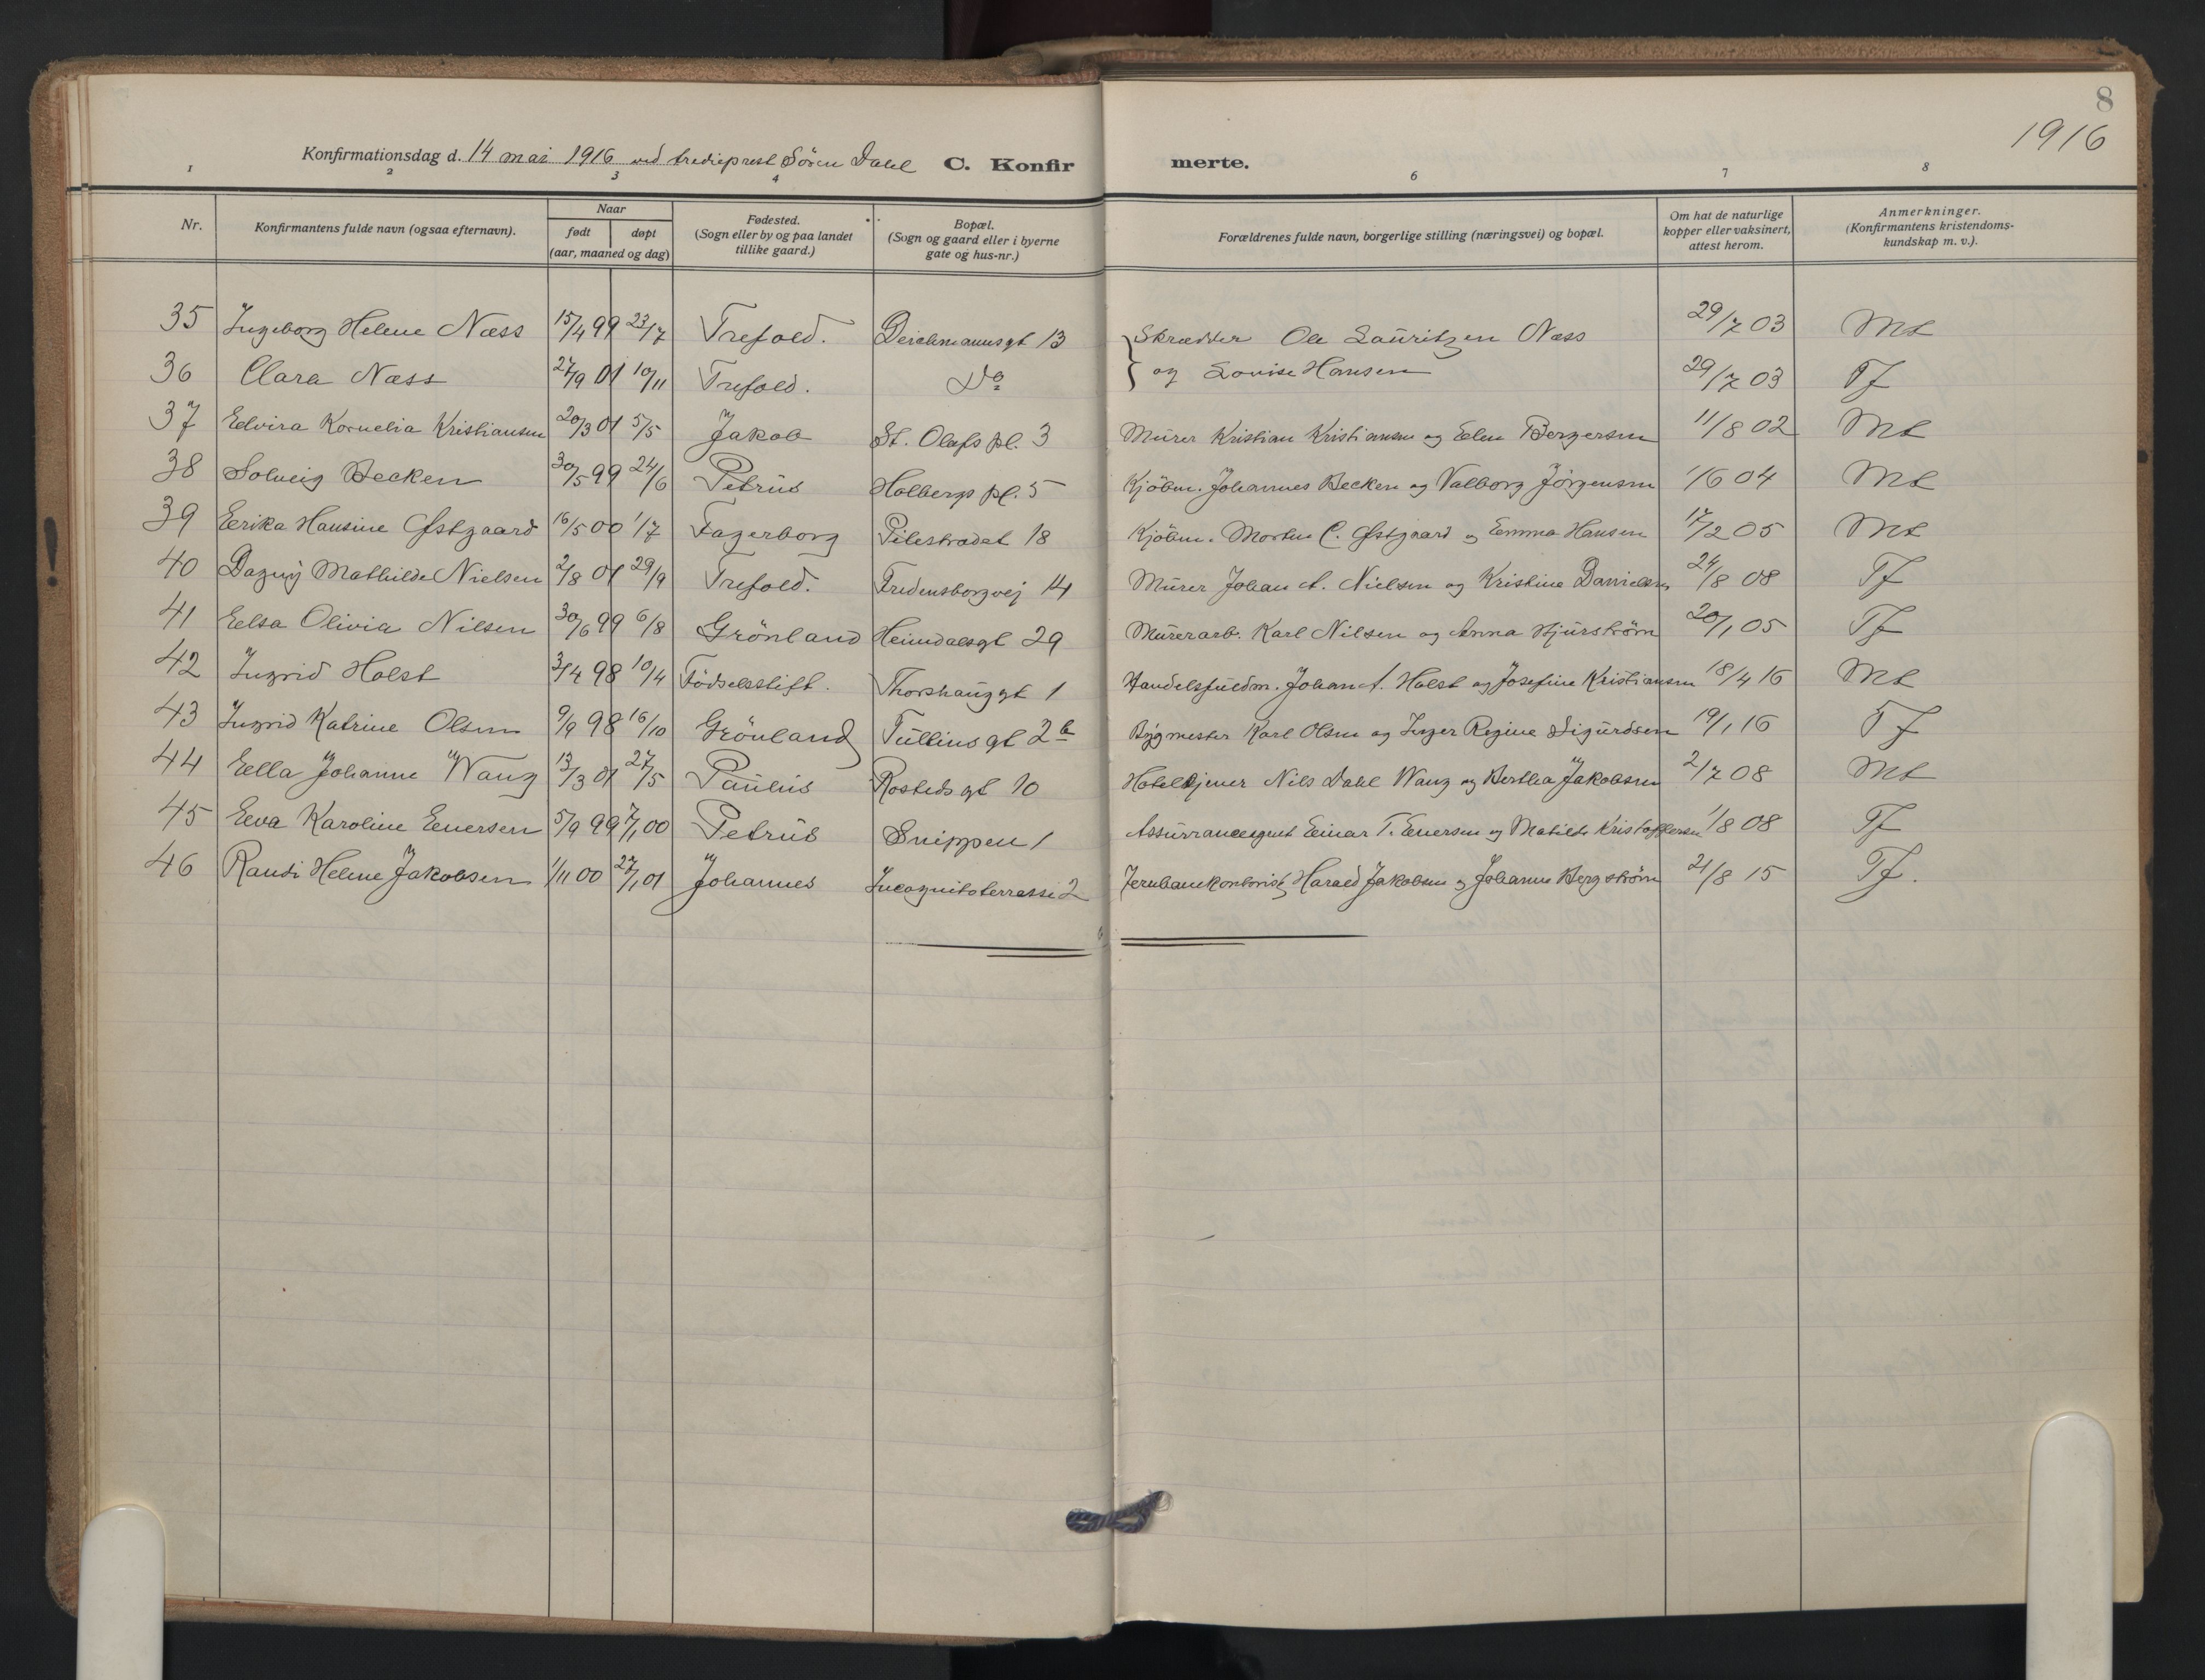 8
1916
Konfirmationsdag d. 14 mai 1916 ved tredieprest Sören Dahl C. Konfir merte.
1 2 3 4 6 7 8
Nr. Konfirmantens fulde navn (ogsaa efternavn). Naar født døpt (aar, maaned og dag) Fødested. (Sogn eller by og paa landet tillike gaard.) Bopæl. (Sogn og gaard eller i byerne gate og hus-nr.) Forældrenes fulde navn, borgerlige stilling (næringsvei) og bopæl. Om hat de naturlige kopper eller vaksinert, attest herom. Anmerkninger. (Konfirmantens kristendoms-kundskap m. v.).
35 Ingeborg Helene Næss 15/4 99 23/7 Trefold. Deichmannsgt 13 Skrædder Ole Lauritzen Næss 29/7 03 Mt
36 Clara Næss 27/9 01 10/11 Trefold. Do og Lovise Hansen 29/7 03 Tf
37 Elvira Kornelia Kristiansen 20/3 01 5/5 Jakob St. Olafs pl. 3 Murer Kristian Kristiansen og Elen Bergersen 11/8 02 Mt
38 Solveig Becken 30/5 99 24/6 Petrus Holbergs pl. 5 Kjöbm. Johannes Becken og Valborg Jörgensen 1/6 04 Mt
39 Erika Hansine Østgaard 16/5 00 1/7 Fagerborg Pilestrædet 18 Kjöbm. Morten C. Østgaard og Emma Hansen 17/2 05 Mt
40 Dagny Mathilde Nielsen 2/8 01 29/9 Trefold. Fredensborgvej 14 Murer Johan A. Nielsen og Kristine Danielsen 24/8 08 Tf
41 Elsa Olivia Nilsen 30/6 99 6/8 Grönland Heimdalsgt 29 Murerarb. Karl Nilsen og Anna Hjurström 20/1 05 Tf
42 Ingrid Holst 3/4 98 10/4 Födselsstift. Thorshauggt 1 Handelsfuldm. Johan A. Holst og Josefine Kristiansen 18/4 16 Mt
43 Ingrid Katrine Olsen 9/9 98 16/10 Grönland Tullinsgt 2 b Bygmester Karl Olsen og Inger Regine Sigurdsen 19/1 16 Tf
44 Ella Johanne Wang 13/3 01 27/5 Paulus Rostedsgt 10 Hoteltjener Nils Dahl Wang og Bertha Jakobsen 2/7 08 Mt
45 Eva Karoline Enersen 5/9 99 7/1 00 Petrus Snippen 1 Assurranceagent Einar T. Enersen og Matilde Kristoffersen 1/8 08 Tf
46 Randi Helene Jakobsen 1/11 00 27/1 01 Johannes Incognitoterrasse 2 Jernbanekontorist Harald Jakobsen og Johanne Bergström 21/8 15 Tf.